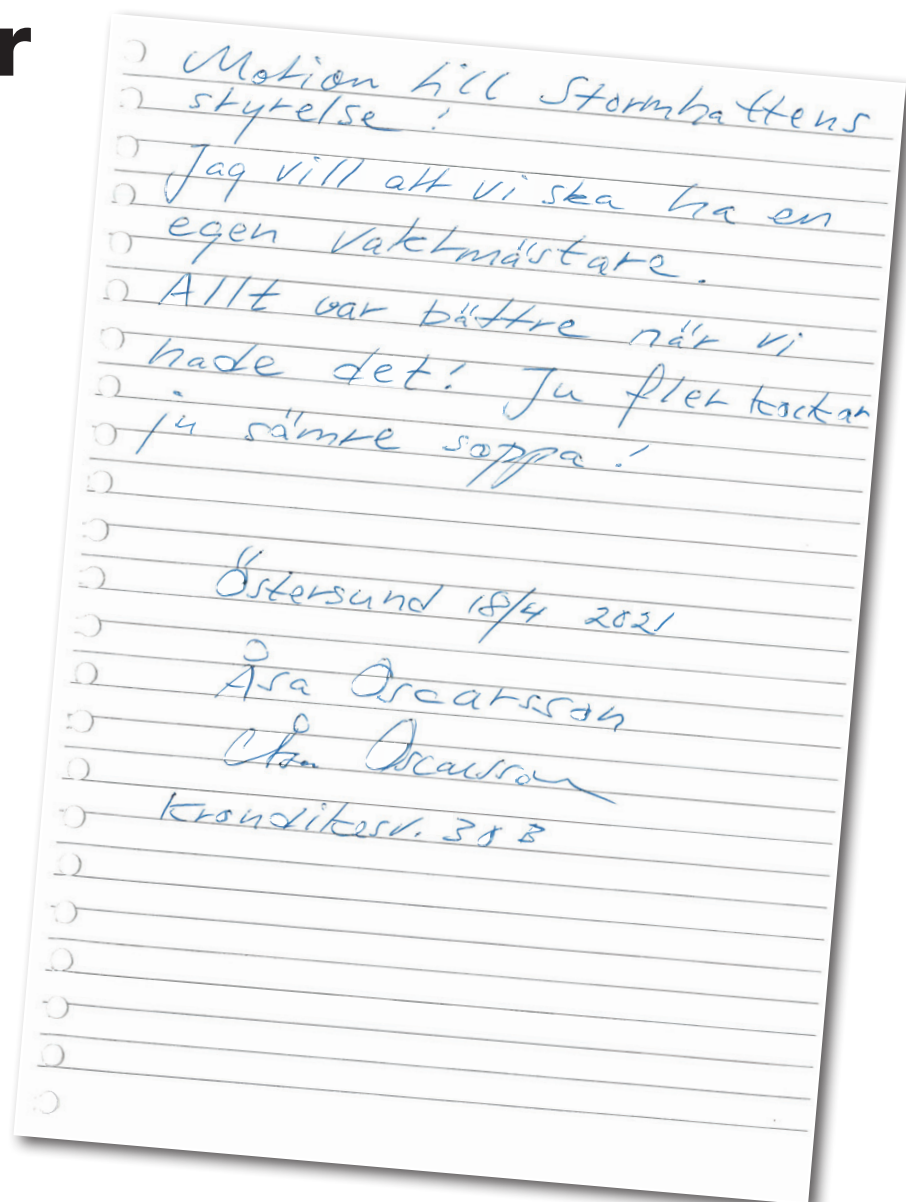 r
Motion till Stormhattens
styrelse!
Jag vill att vi ska ha en
egen vaktmästare.
Allt var bättre när vi
hade det! Ju fler kockar
ju sämre soppa!
Östersund 18/4 2021
Åsa Oscarsson
Åsa Oscarsson
Krondikesv. 38 B